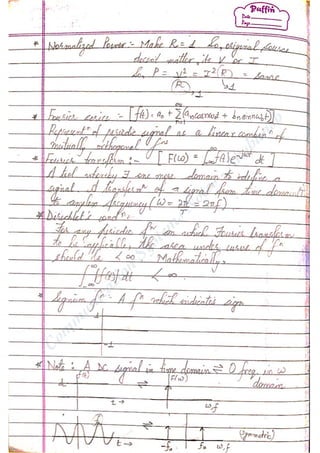 Puffin
Date
Page
* Normalized Power :- Make R = 1 So, original source
doesn't matter, its V or I
So, P = V² = I² (R) = same
(R) → 1 → 1
* Fourier series :- [ f(t) = a₀ + Σ (aₙcosnω₀t + bₙsinnω₀t) ]
∞
n=1
Represent^n of periodic signal as a linear combin^n of
mutually orthogonal f^n
* Fourier transform :- [ F(ω) = ∫ f(t) e^-jωt dt ]
∞
-∞
A tool whereby ∃ one more domain to redefine a
signal. A transform^n of a signal from time domain
to angular frequency (ω = 2π/T = 2πf)
* Dirichlet's cond^n:
For any periodic f^n on which Fourier transform
to be applicable, the area under curve of f^n
should be < ∞. Mathematically,
∫ |f(t)| dt < ∞
∞
-∞
* Signum f^n :- A f^n which indicates sign
1
-1
* Note : A DC signal in time domain ⇌ 0 freq. in ω
domain
f(t) ⇌ F(ω)
t → ω, f
(symmetric)
t → ⇌ -f₀ f₀ ω, f